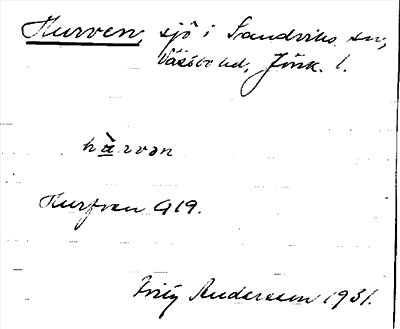 Hurven, sjö i Sandviks sn,
Västbo hd, Jönk. l.
hàrvən
Hurfven G19.
Fritz Andersson 1931.